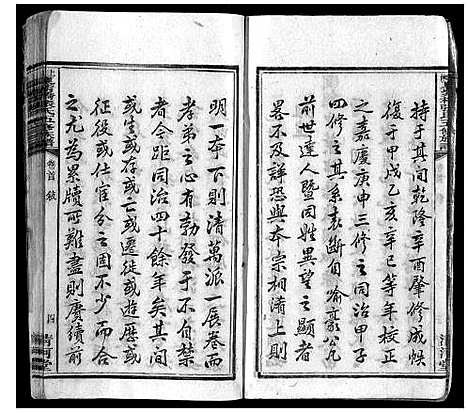 持于其間乾隆辛酉肇修成帙
復于甲戌乙亥辛巳等年校正
之嘉慶庚申三修之同治甲子
四修之其系表斷自喻豪公凡
前世達人暨同姓異望之顯者
畧不及詳恐與本宗相淆上則
清河堂
卷首 敘
四
清河堂
明一本下則清萬派一展卷而
孝弟之心有勃發于不自禁
者今距同治四十餘年矣其間
或生或存或遷徙或遊歷或
征役或仕宦分之固不少而合
之尤為累牘所難盡則賡續前